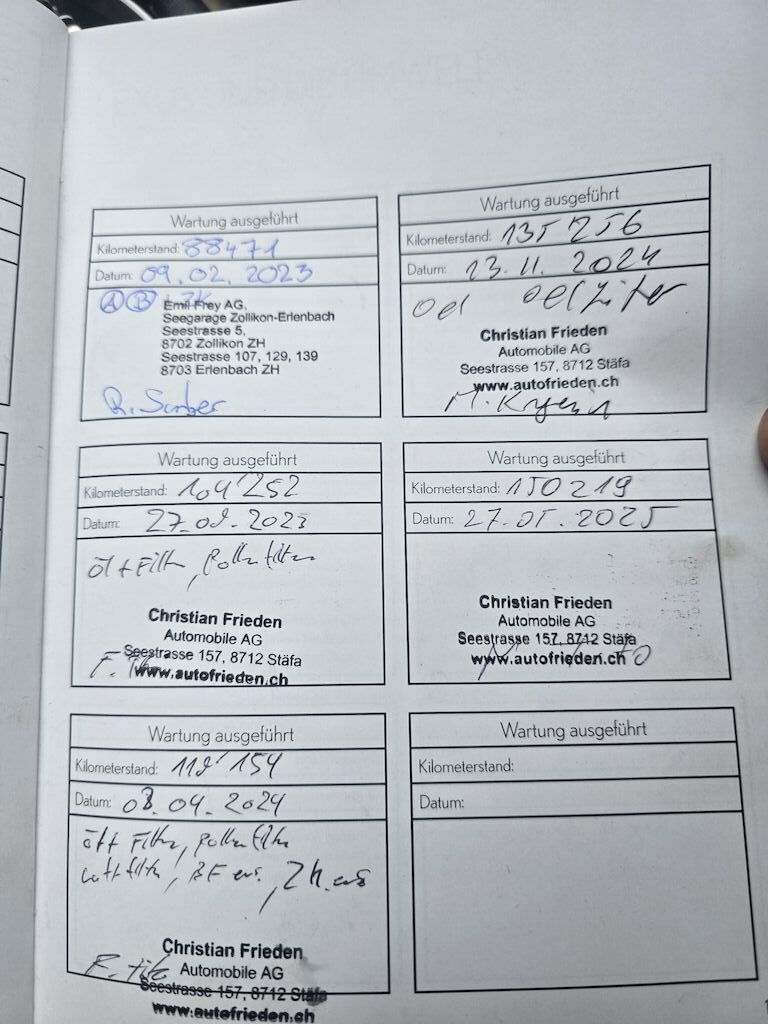 Wartung ausgeführt
Kilometerstand: 88471
Datum: 09.02.2023
A B
Emil Frey AG,
Seegarage Zollikon-Erlenbach
Seestrasse 5,
8702 Zollikon ZH
Seestrasse 107, 129, 139
8703 Erlenbach ZH
Wartung ausgeführt
Kilometerstand: 104'252
Datum: 27.09.2023
öl + Filter, Pollenfilter
Christian Frieden
Automobile AG
Seestrasse 157, 8712 Stäfa
www.autofrieden.ch
Wartung ausgeführt
Kilometerstand: 119'154
Datum: 03.04.2024
öl + Filter, Pollenfilter
Luftfilter, BF ers., ZK. ers
Christian Frieden
Automobile AG
Seestrasse 157, 8712 Stäfa
www.autofrieden.ch
Wartung ausgeführt
Kilometerstand: 135256
Datum: 13.11.2024
Oel Oelfilter
Christian Frieden
Automobile AG
Seestrasse 157, 8712 Stäfa
www.autofrieden.ch
Wartung ausgeführt
Kilometerstand: 150219
Datum: 27.05.2025
Christian Frieden
Automobile AG
Seestrasse 157, 8712 Stäfa
www.autofrieden.ch
Wartung ausgeführt
Kilometerstand:
Datum: